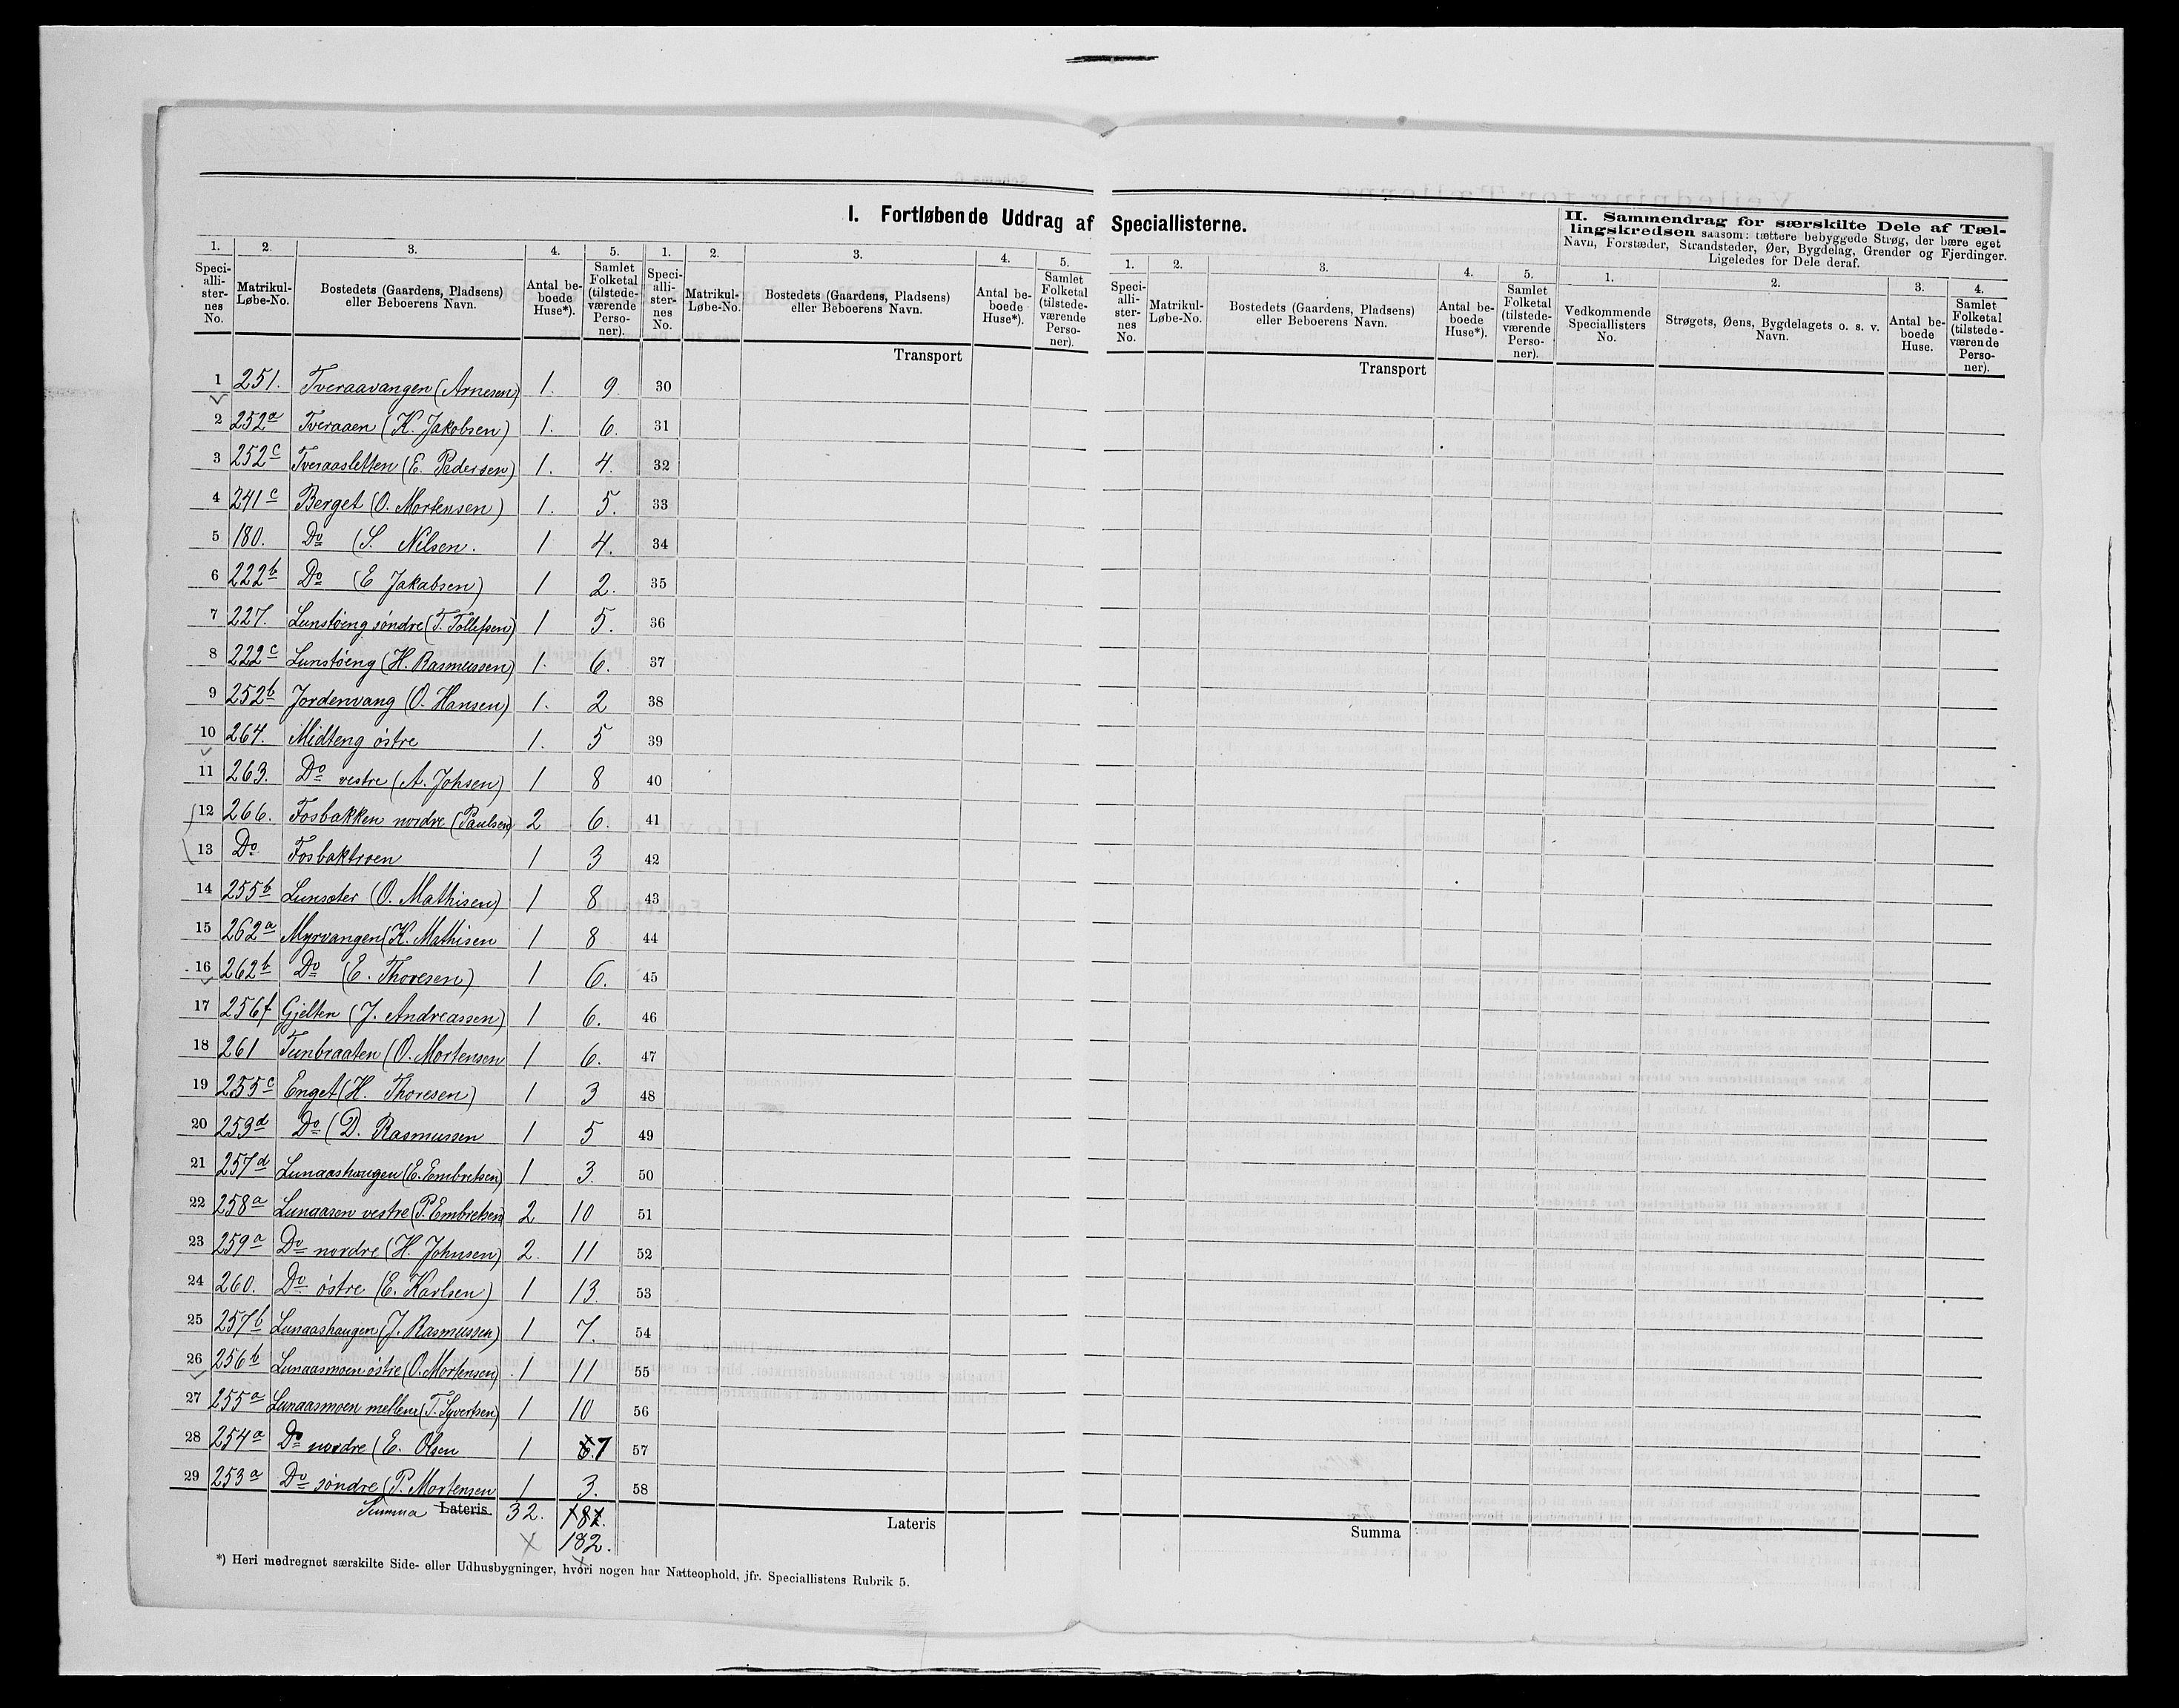 I. Fortløbende Uddrag af Speciallisterne.
II. Sammendrag for særskilte Dele af Tæl-
lingskredsen saasom: tættere bebyggede Strøg, der bære eget
Navn, Forstæder, Strandsteder, Øer, Bygdelag, Grender og Fjerdinger.
Ligeledes for Dele deraf.
1. 2. 3. 4. 5. 1. 2. 3. 4. 5. 1. 2. 3. 4. 5. 1. 2. 3. 4.
Speci-alli-ster-nes No. Matrikul-Løbe-No. Bostedets (Gaardens, Pladsens) eller Beboerens Navn. Antal be-boede Huse*). Samlet Folketal (tilstede-værende Perso-ner).
Speci-alli-ster-nes No. Matrikul-Løbe-No. Bostedets (Gaardens, Pladsens) eller Beboerens Navn. Antal be-boede Huse*). Samlet Folketal (tilstede-værende Perso-ner).
Speci-alli-ster-nes No. Matrikul-Løbe-No. Bostedets (Gaardens, Pladsens) eller Beboerens Navn. Antal be-boede Huse*). Samlet Folketal (tilstede-værende Perso-ner).
Vedkommende Speciallisters No. Strøgets, Øens, Bygdelagets o. s. v. Navn. Antal be-boede Huse. Samlet Folketal (tilstede-værende Perso-ner).
Transport Transport
1 251. Tveraavangen (Arnesen) 1. 9. 30
2 252a Tveraaen (K. Jakobsen) 1. 6. 31
3 252c Tveraasletten (E. Pedersen) 1. 4. 32
4 241c Berget (O. Mortensen) 1. 5. 33
5 180. Do (S. Nilsen. 1 4. 34
6 222b Do (E Jakabsen) 1 2. 35
7 227. Lunstøeng søndre (T. Tollefsen) 1 5. 36
8 222c Lunstøeng (H. Rasmussen) 1. 6. 37
9 252b Jordenvang (O. Hansen) 1. 2 38
10 264. Midteng østre 1. 5 39
11 263. Do vestre (A. Johsen) 1 8 40
12 266. Fosbakken nordre (Paulsen) 2 6. 41
13 Do Fosbaktroen 1 3 42
14 255b Lunsæter (O. Mathisen) 1 8 43
15 262a Myrvangen (K. Mathisen 1 8 44
16 262b Do (E. Thoresen) 1 6. 45
17 256f Gjelten (J. Andreassen) 1 6. 46
18 261 Tunbraaten (O. Mortensen 1 6. 47
19 255c Enget (H. Thoresen) 1 3 48
20 259d Do (D. Rasmussen 1 5 49
21 257d Lunaashaugen (E. Embretsen) 1 3. 50
22 258a Lunaasen vestre (P. Embretsen) 2 10 51
23 259a Do nordre (H. Johnsen) 2. 11 52
24 260. Do østre (E. Karlsen) 1 13. 53
25 257b Lunaashaugen (J. Rasmussen) 1 7. 54
26 256b Lunaasmoen østre (O. Mortensen) 1 11 55
27 255a Lunaasmoen mellem (T. Syvertsen) 1 10 56
28 254a Do nordre (E. Olsen 1 6. 7 57
29 253a Do søndre (P. Mortensen 1 3. 58
Summa Lateris 32. 181. Lateris Summa
182.
*) Heri medregnet særskilte Side- eller Udhusbygninger, hvori nogen har Natteophold, jfr. Speciallistens Rubrik 5.